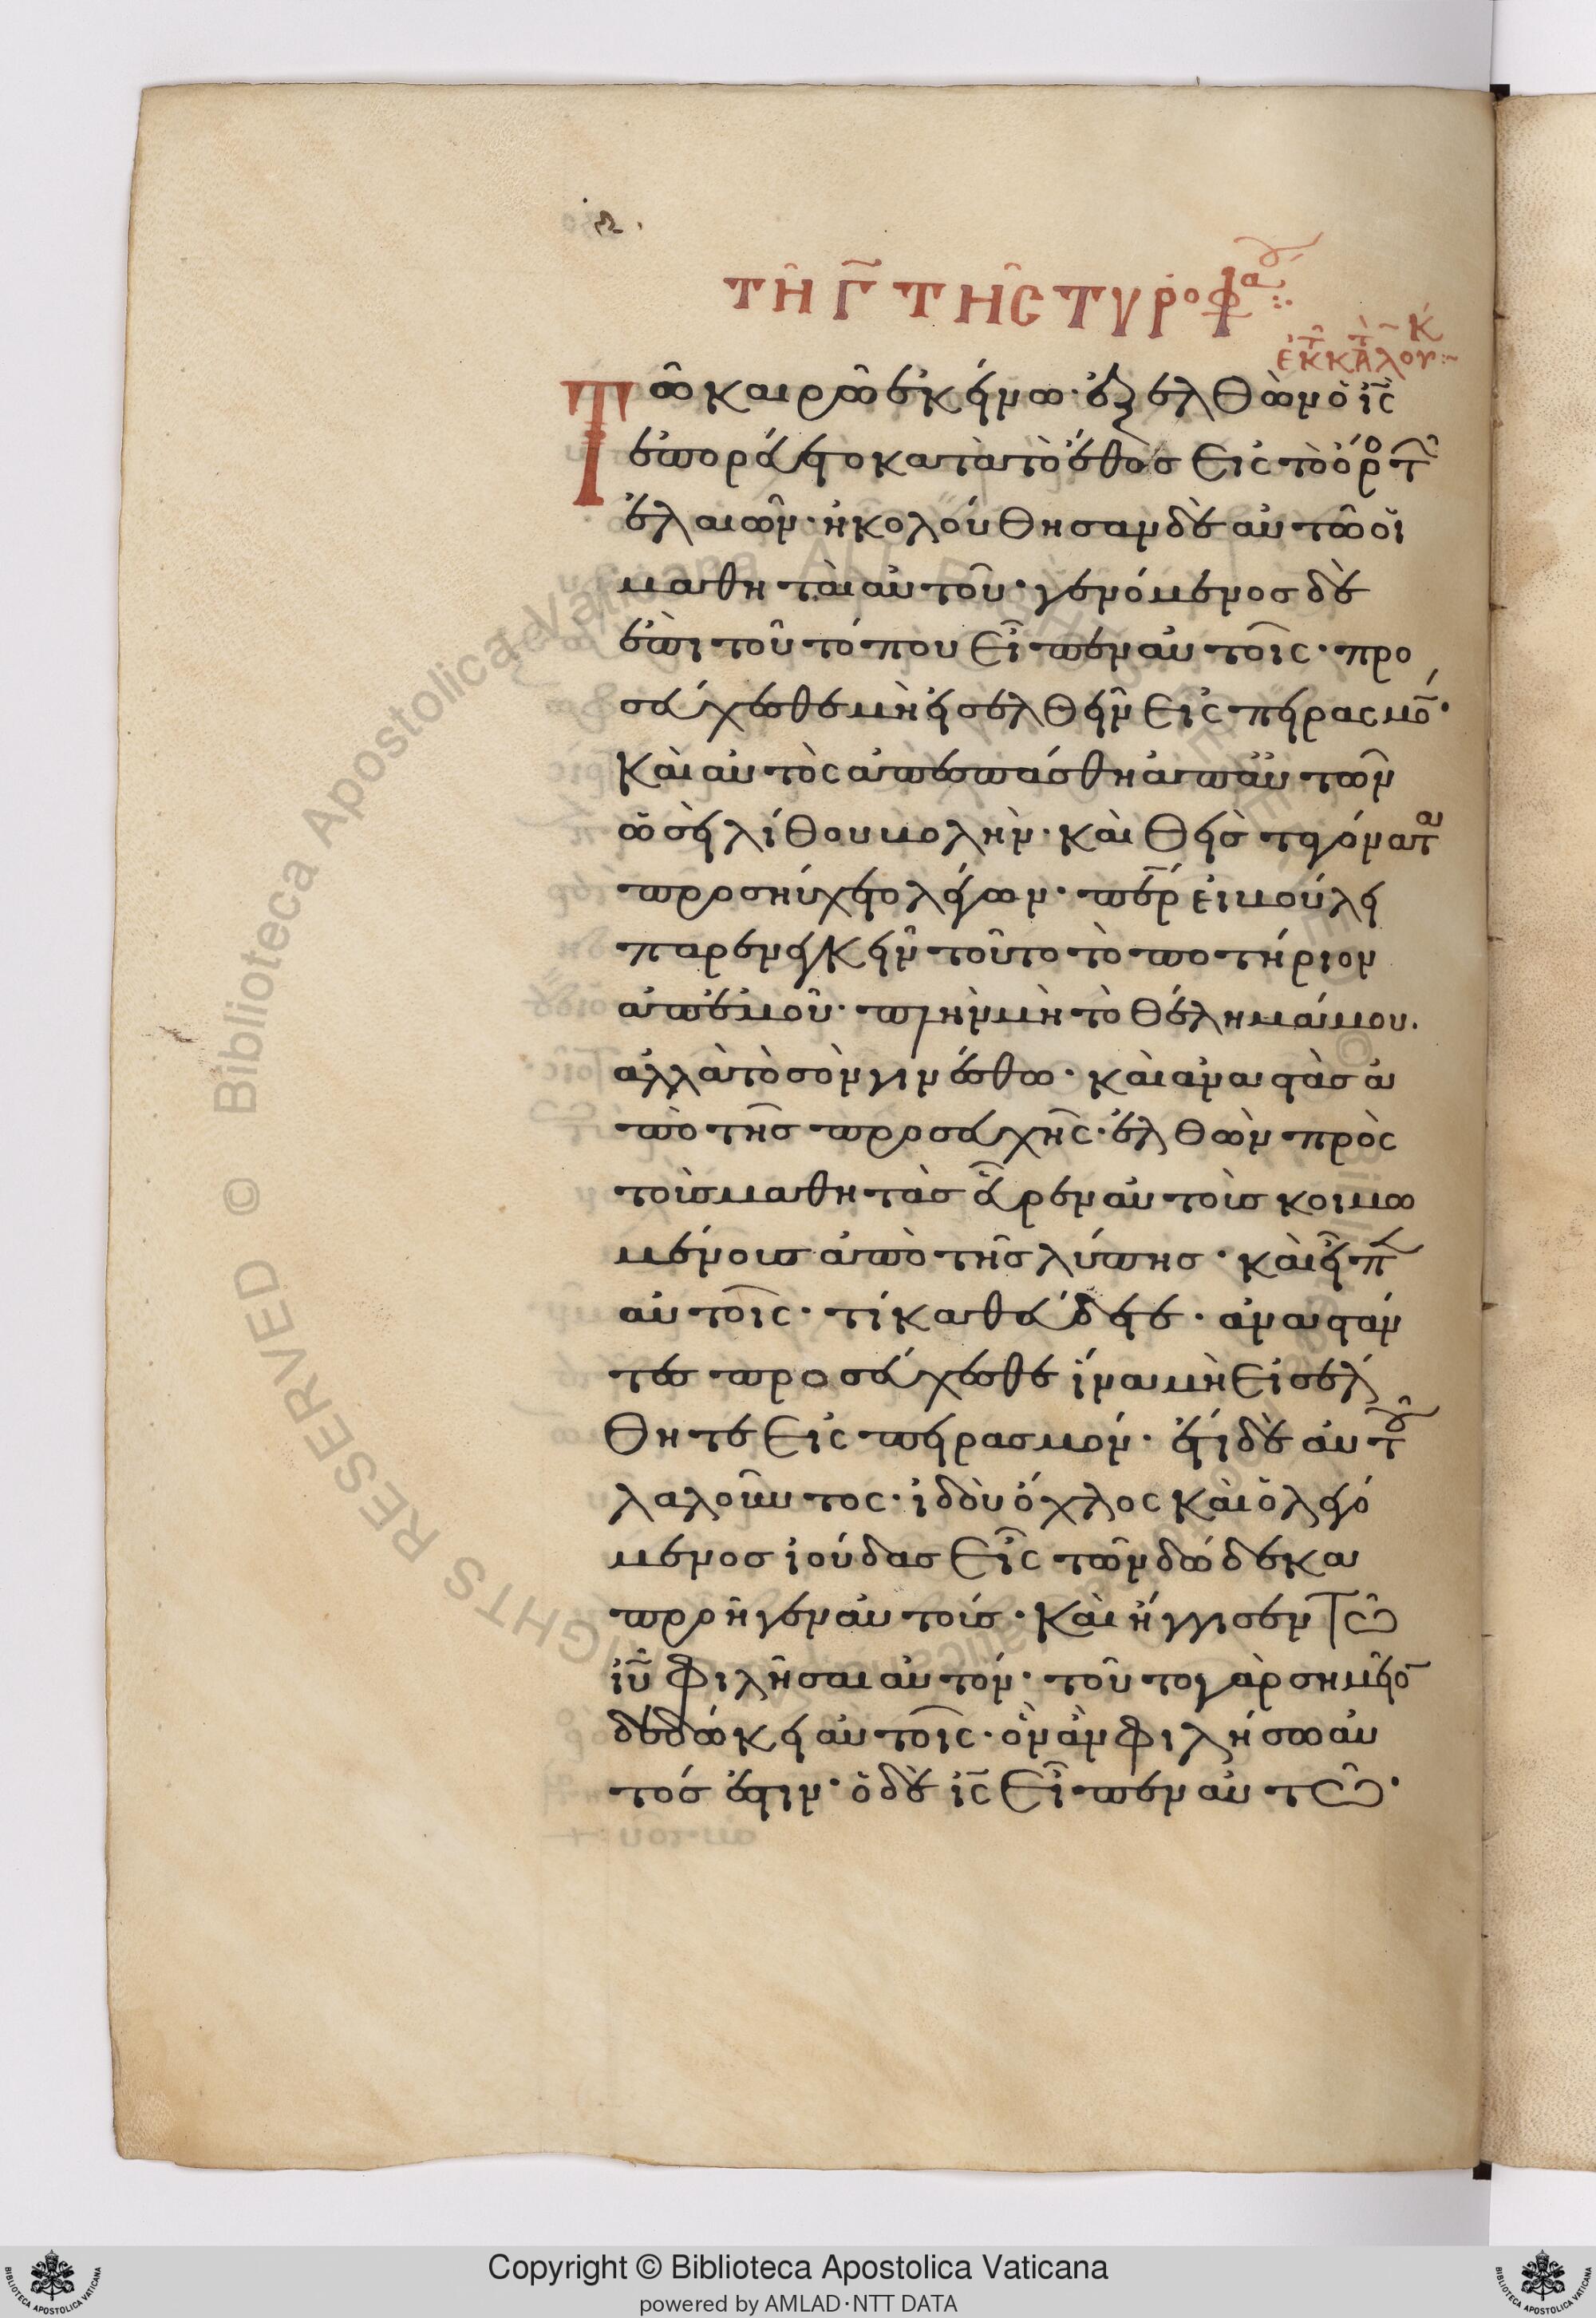 τῆ γ̅ τῆς τυροφα
ἐκ τ κτ λου κ
Τῶ καιρῶ ἐκείνω· ἐξελθὼν ὁ ι̅ς̅
ἐπορεύετο κατὰ τὸ ἔθος εἰς τὸ ὄρο τ
ἐλαιῶν· ἠκολούθησαν δὲ αὐτῶ οἱ
μαθηταὶ αὐτοῦ· γενόμενος δὲ
ἐπὶ τοῦ τόπου εἶπεν αὐτοῖς· προ
σεύχεσθε μὴ εἰσελθεῖν εἰς πειρασμο̅·
Καὶ αὐτὸς ἀπεσπάσθη ἀπ' αὐτῶν
ὡσεὶ λίθου βολήν· καὶ θεὶς τὰ γόνατ
προσηύχετο λέγων· περ εἰ βούλει
παρενεγκεῖν τοῦτο τὸ ποτήριον
ἀπ' ἐμοῦ· πλὴν μὴ τὸ θέλημά μου.
ἀλλὰ τὸ σὸν γινέσθω· καὶ ἀναστὰς ἀ
πὸ τῆς προσευχῆς· ἐλθὼν πρὸς
τοὺς μαθητὰς εὗρεν αὐτοὺς κοιμω
μένους ἀπὸ τῆς λύπης· καὶ εἶπ
αὐτοῖς· τί καθεύδετε· ἀναστάν
τες προσεύχεσθε ἵνα μὴ εἰσέλ
θητε εἰς πειρασμόν· ἔτι δὲ αὐτοῦ
λαλοῦντος· ἰδοὺ ὄχλος καὶ ὁ λεγό
μενος ἰούδας εἷς τῶν δώδεκα
προῆγεν αὐτούς· Καὶ ἤγγισεν τῶ
ι̅υ̅ φιλῆσαι αὐτόν· τοῦτο γὰρ σημεῖο̅
δεδώκει αὐτοῖς· ὃν ἂν φιλήσω αὐ
τός ἐστιν· ὁ δὲ ι̅ς̅ εἶπεν αὐτῶ·
Copyright © Biblioteca Apostolica Vaticana
powered by AMLAD·NTT DATA